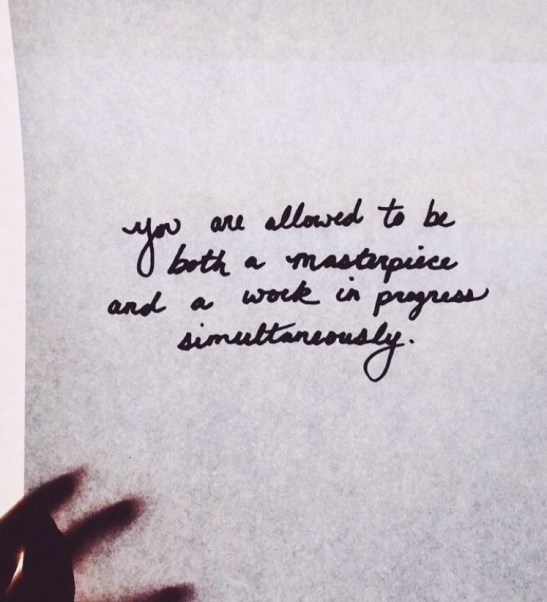 you are allowed to be
both a masterpiece
and a work in progress
simultaneously.